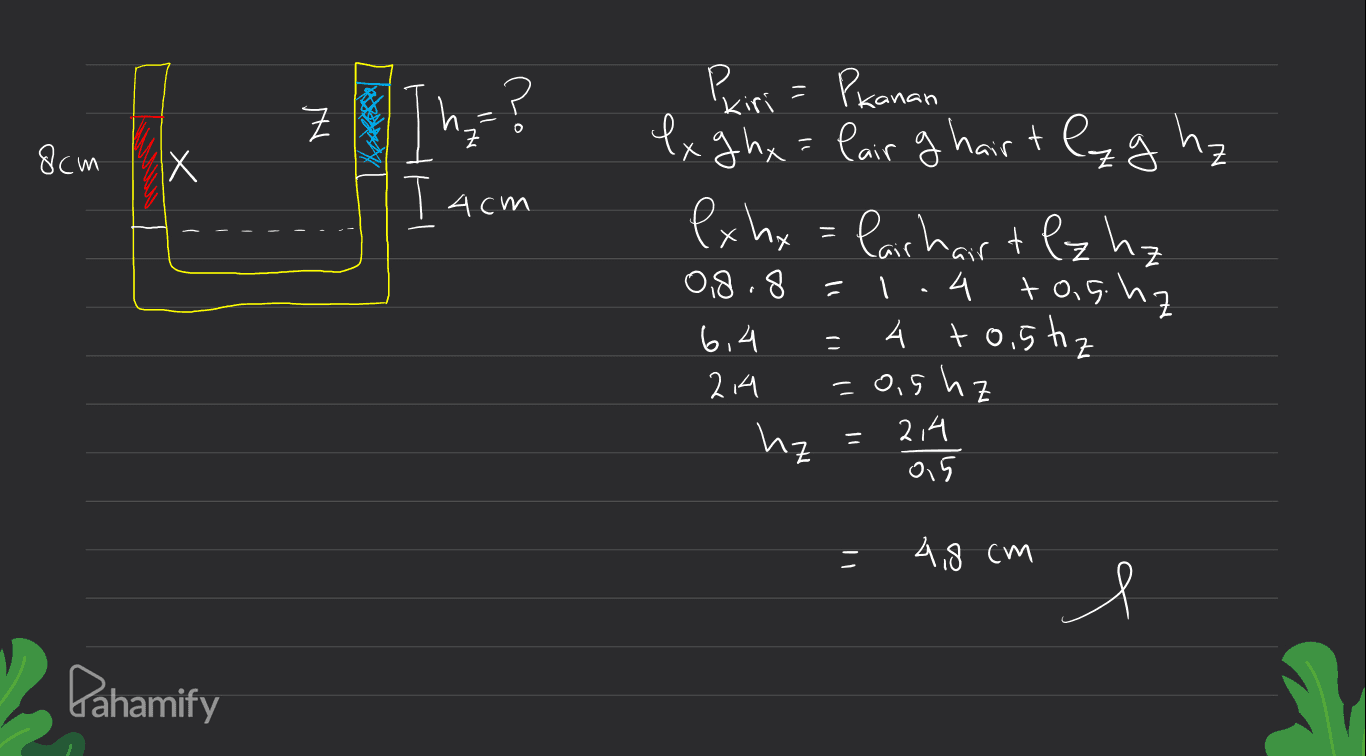 8cm
X
Z
hz = ?
4cm
Pkiri = Pkanan
ρx g hx = ρair g hair + ρz g hz
ρx hx = ρair hair + ρz hz
0,8 . 8 = 1 . 4 + 0,5 . hz
6,4 = 4 + 0,5 hz
2,4 = 0,5 hz
hz = 2,4
0,5
= 4,8 cm
Pahamify